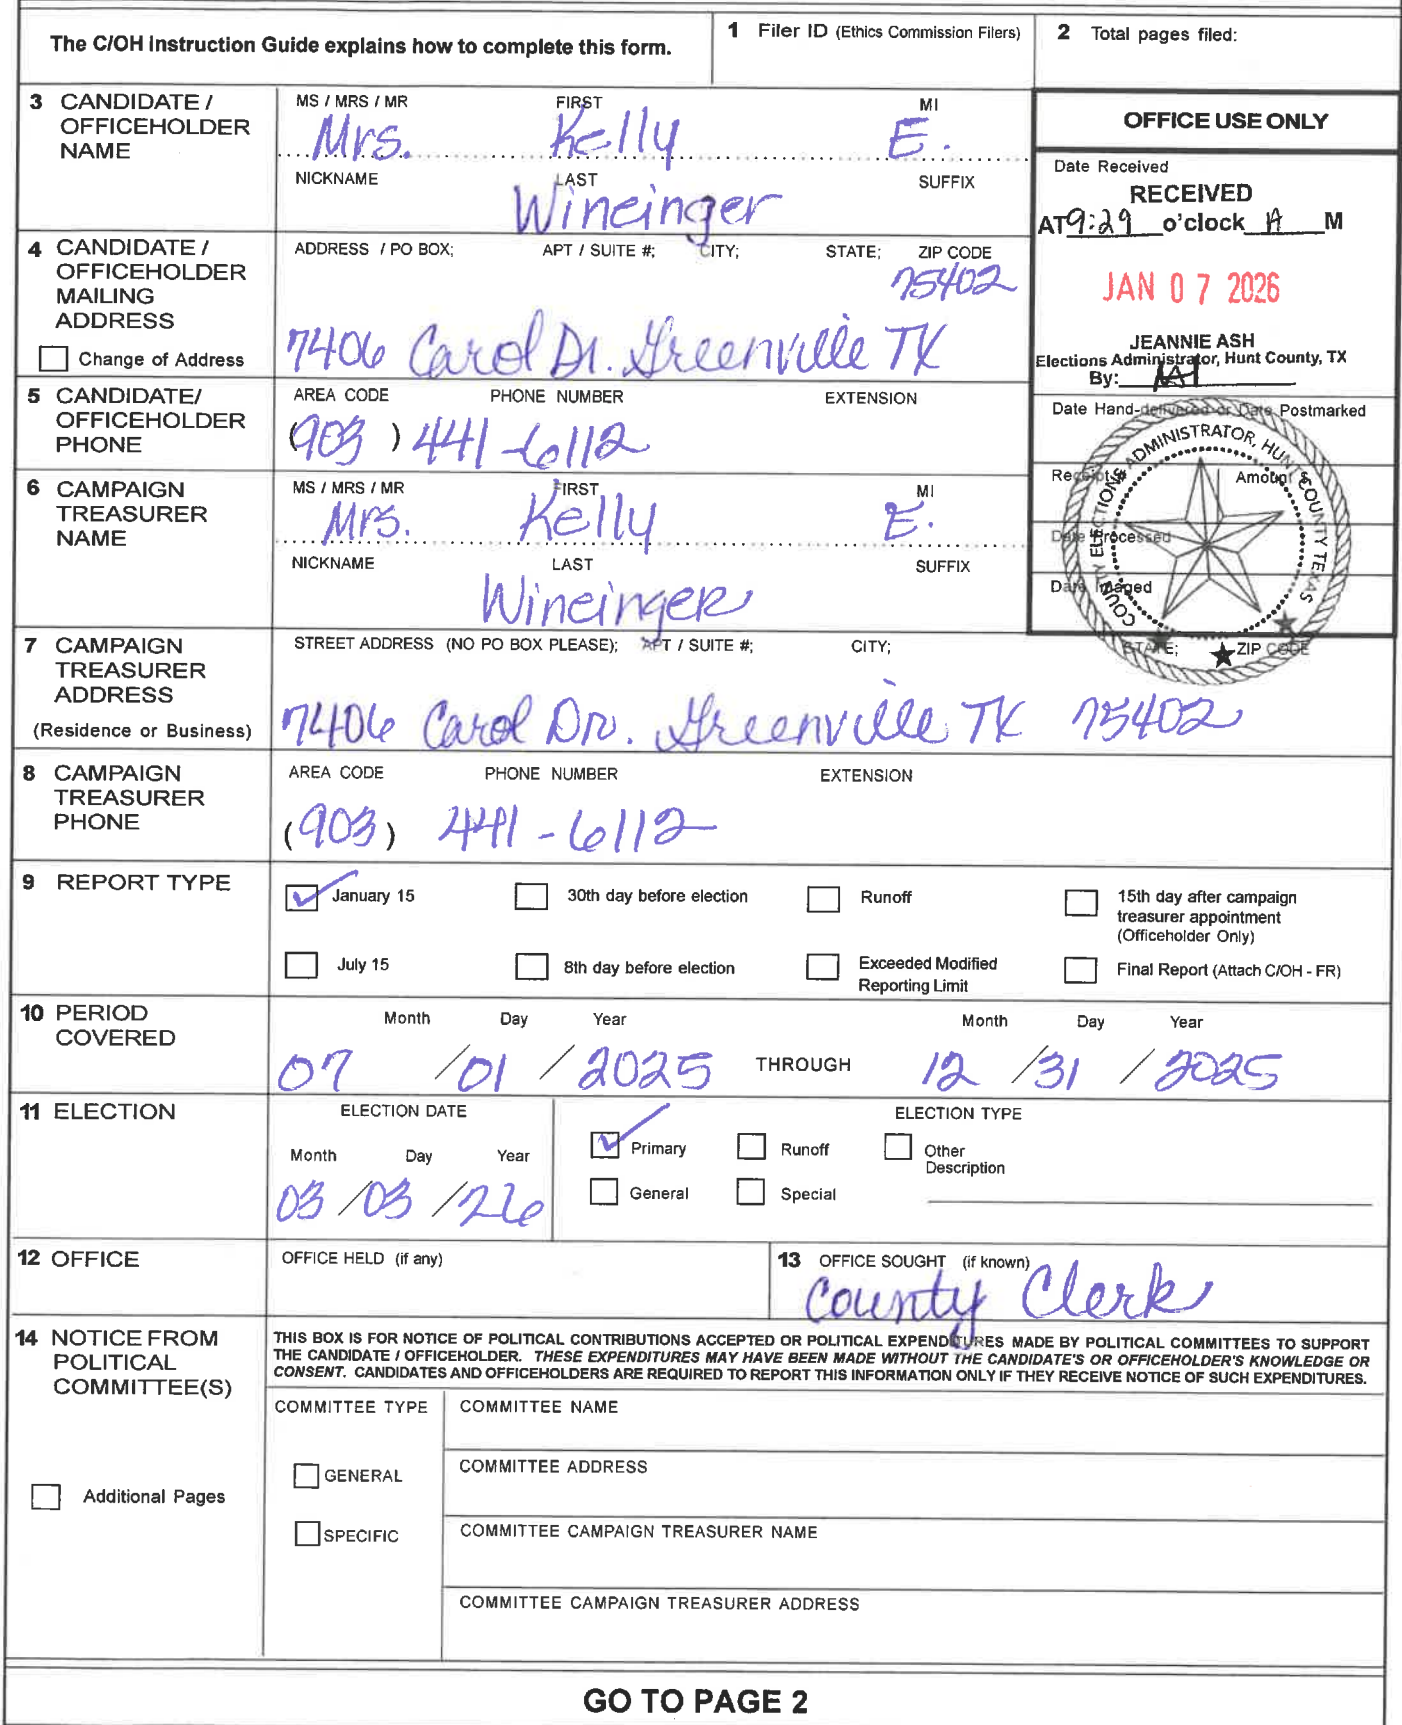 The C/OH Instruction Guide explains how to complete this form.
1 Filer ID (Ethics Commission Filers)
2 Total pages filed:
3 CANDIDATE / OFFICEHOLDER NAME
MS / MRS / MR FIRST MI
Mrs. Kelly E.
NICKNAME LAST SUFFIX
Wineinger
OFFICE USE ONLY
Date Received
RECEIVED
AT 9:29 o'clock A M
JAN 07 2026
JEANNIE ASH
Elections Administrator, Hunt County, TX
By:
Date Hand-delivered or Date Postmarked
Receipt # Amount $
Date Processed
Date Imaged
COUNTY ELECTIONS ADMINISTRATOR, HUNT COUNTY TEXAS
4 CANDIDATE / OFFICEHOLDER MAILING ADDRESS
Change of Address
ADDRESS / PO BOX; APT / SUITE #; CITY; STATE; ZIP CODE
75402
7406 Carol Dr. Greenville TX
5 CANDIDATE/ OFFICEHOLDER PHONE
AREA CODE PHONE NUMBER EXTENSION
(903) 441-6112
6 CAMPAIGN TREASURER NAME
MS / MRS / MR FIRST MI
Mrs. Kelly E.
NICKNAME LAST SUFFIX
Wineinger
7 CAMPAIGN TREASURER ADDRESS
(Residence or Business)
STREET ADDRESS (NO PO BOX PLEASE); APT / SUITE #; CITY; STATE; ZIP CODE
7406 Carol Dr. Greenville TX 75402
8 CAMPAIGN TREASURER PHONE
AREA CODE PHONE NUMBER EXTENSION
(903) 441-6112
9 REPORT TYPE
January 15 30th day before election Runoff 15th day after campaign treasurer appointment (Officeholder Only)
July 15 8th day before election Exceeded Modified Reporting Limit Final Report (Attach C/OH - FR)
10 PERIOD COVERED
Month Day Year Month Day Year
07 / 01 / 2025 THROUGH 12 / 31 / 2025
11 ELECTION
ELECTION DATE ELECTION TYPE
Month Day Year
03 / 03 / 26
Primary Runoff Other Description
General Special
12 OFFICE
OFFICE HELD (if any)
13 OFFICE SOUGHT (if known)
County Clerk
14 NOTICE FROM POLITICAL COMMITTEE(S)
THIS BOX IS FOR NOTICE OF POLITICAL CONTRIBUTIONS ACCEPTED OR POLITICAL EXPENDITURES MADE BY POLITICAL COMMITTEES TO SUPPORT
THE CANDIDATE / OFFICEHOLDER. THESE EXPENDITURES MAY HAVE BEEN MADE WITHOUT THE CANDIDATE'S OR OFFICEHOLDER'S KNOWLEDGE OR
CONSENT. CANDIDATES AND OFFICEHOLDERS ARE REQUIRED TO REPORT THIS INFORMATION ONLY IF THEY RECEIVE NOTICE OF SUCH EXPENDITURES.
Additional Pages
COMMITTEE TYPE
GENERAL
SPECIFIC
COMMITTEE NAME
COMMITTEE ADDRESS
COMMITTEE CAMPAIGN TREASURER NAME
COMMITTEE CAMPAIGN TREASURER ADDRESS
GO TO PAGE 2